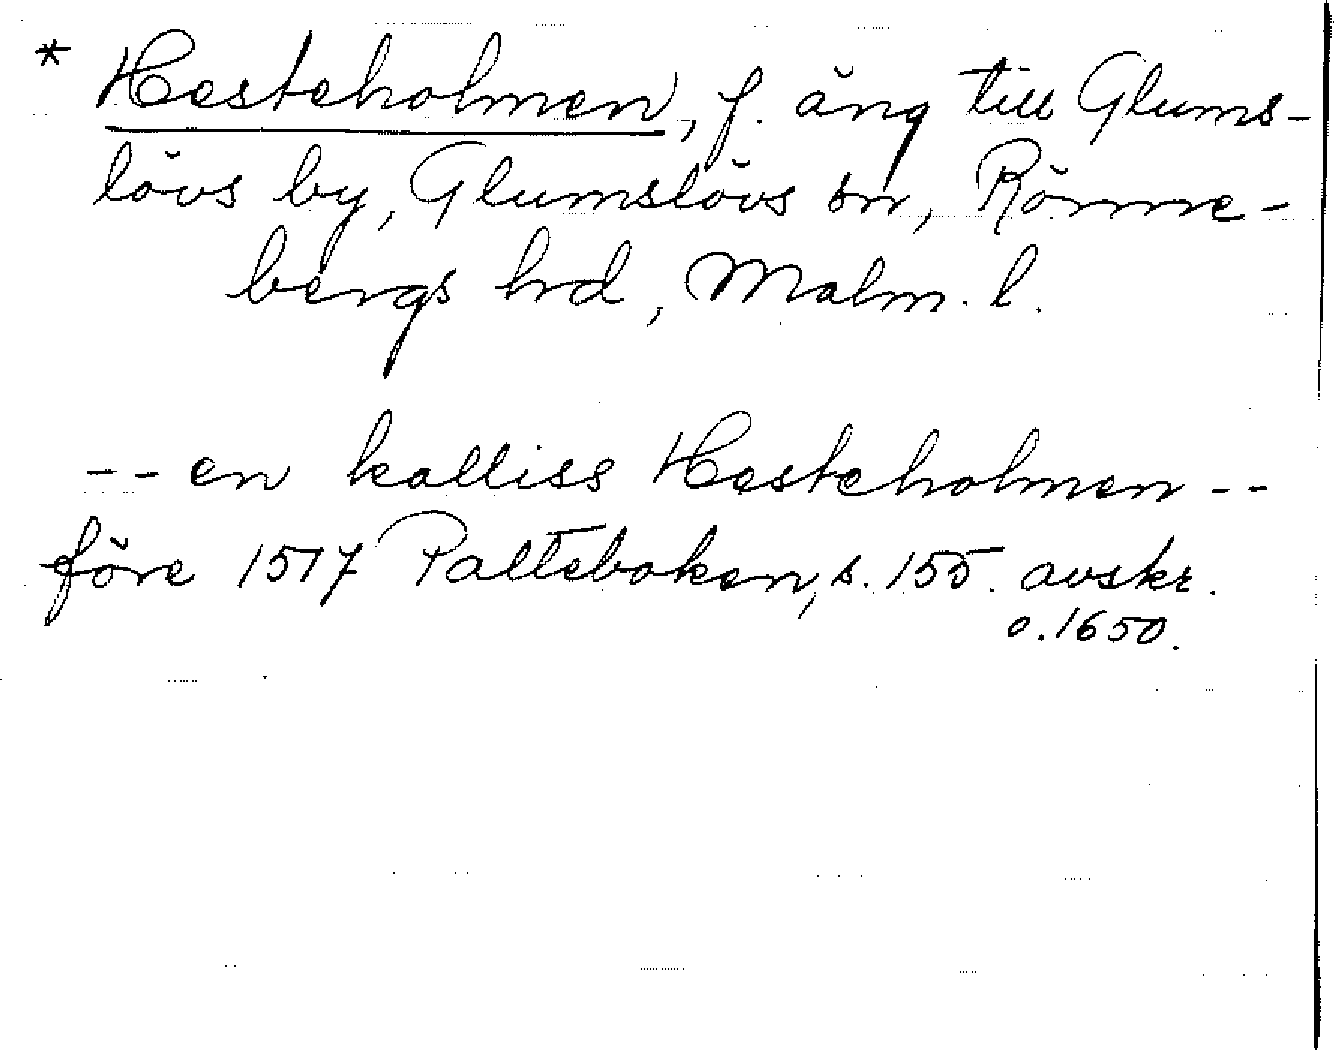 * Hesteholmen, f. äng till Glums-
lövs by, Glumslövs sn, Rönne-
bergs hrd, Malm. l.
-- en kalliss Hesteholmen --
före 1517 Palteboken, s. 155. avskr.
o. 1650.